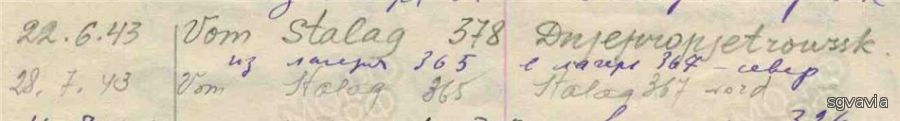 22.6.43 Vom Stalag 378 Dnjepropjetrowsk.
из лагеря 365 в лагерь 367 - север
28.7.43 Vom Stalag 365 Stalag 367 nord
sgvavia